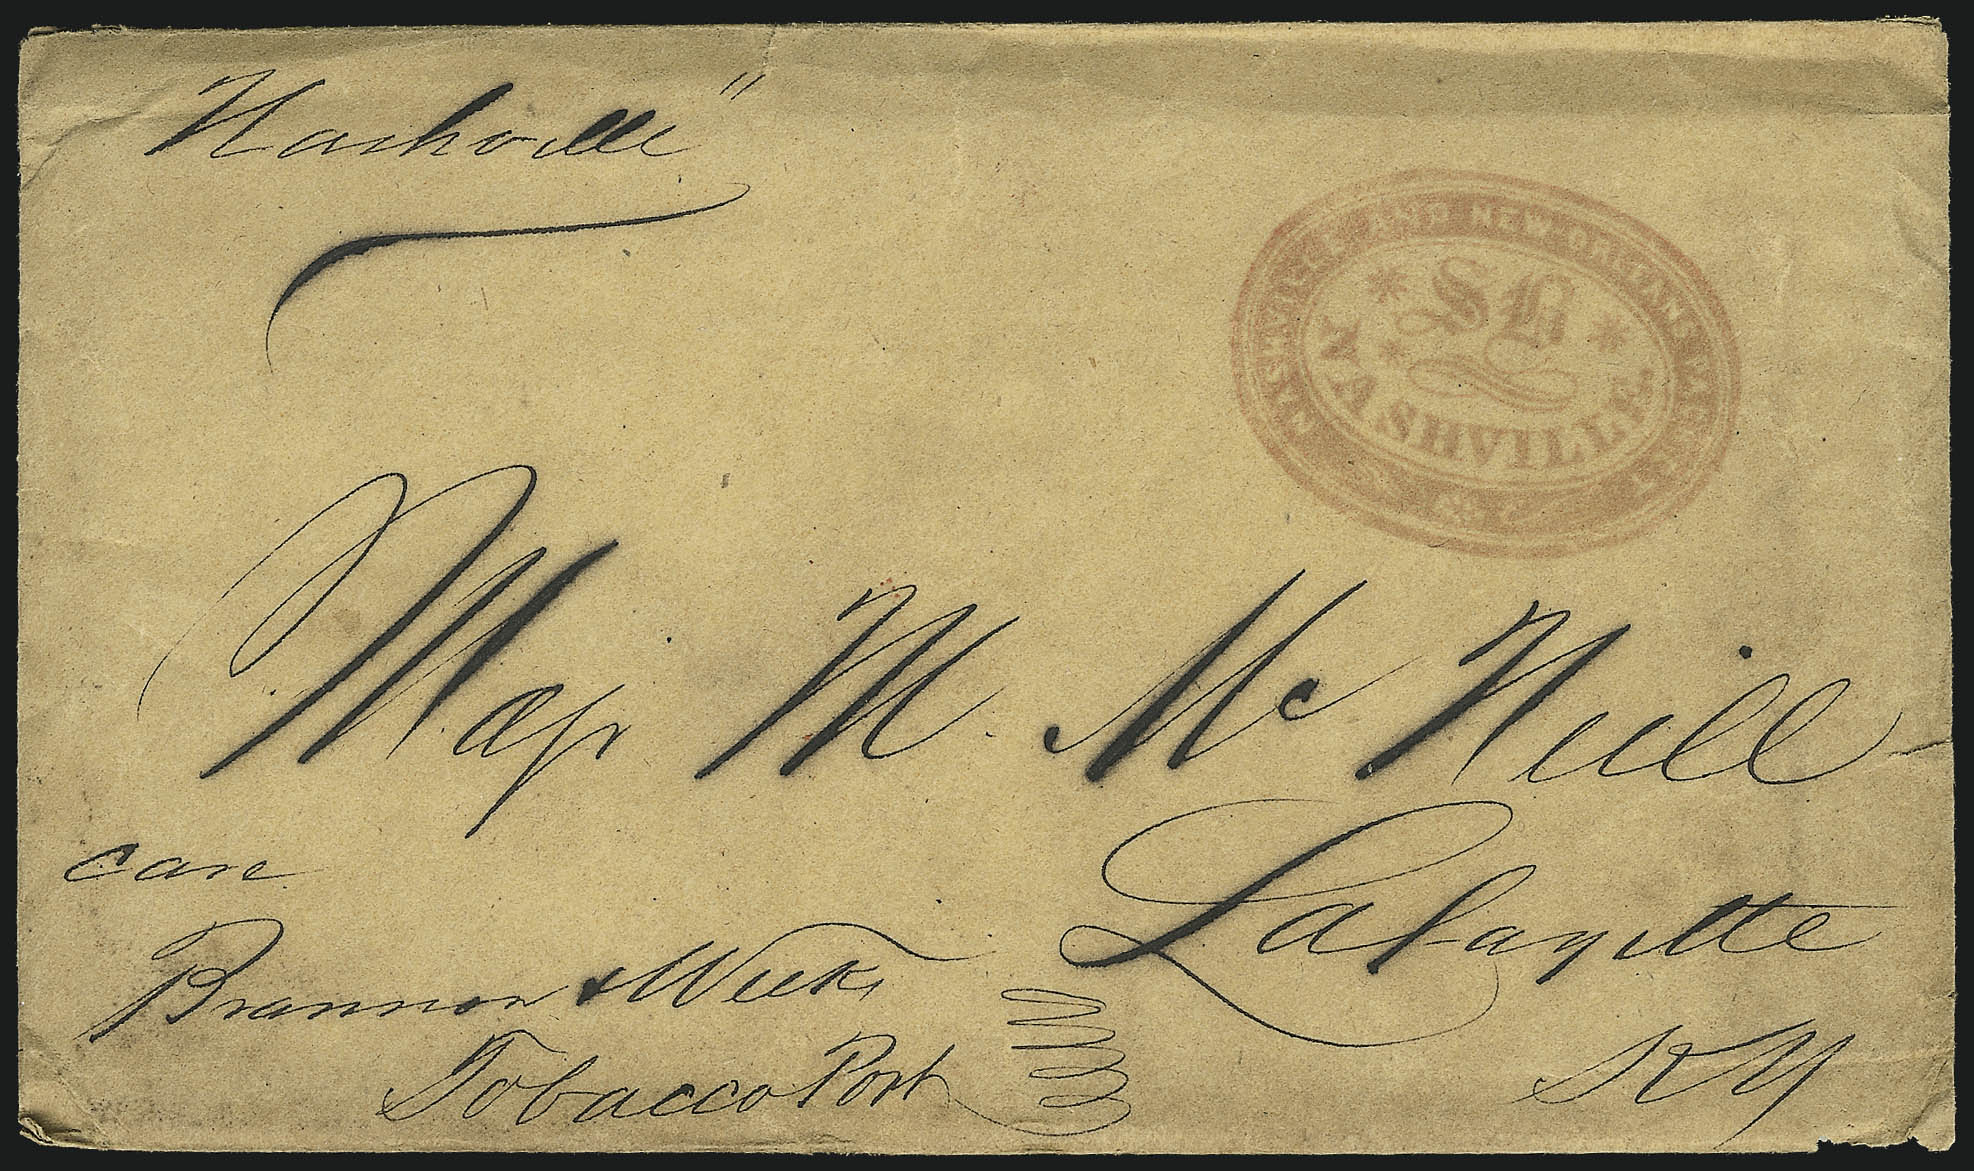 Nashville"
NASHVILLE AND NEW ORLEANS PACKET
SB
NASHVILLE.
Maj M. McNeill
Lafayette
KY
care
Brannon & Weeks
Tobacco Port